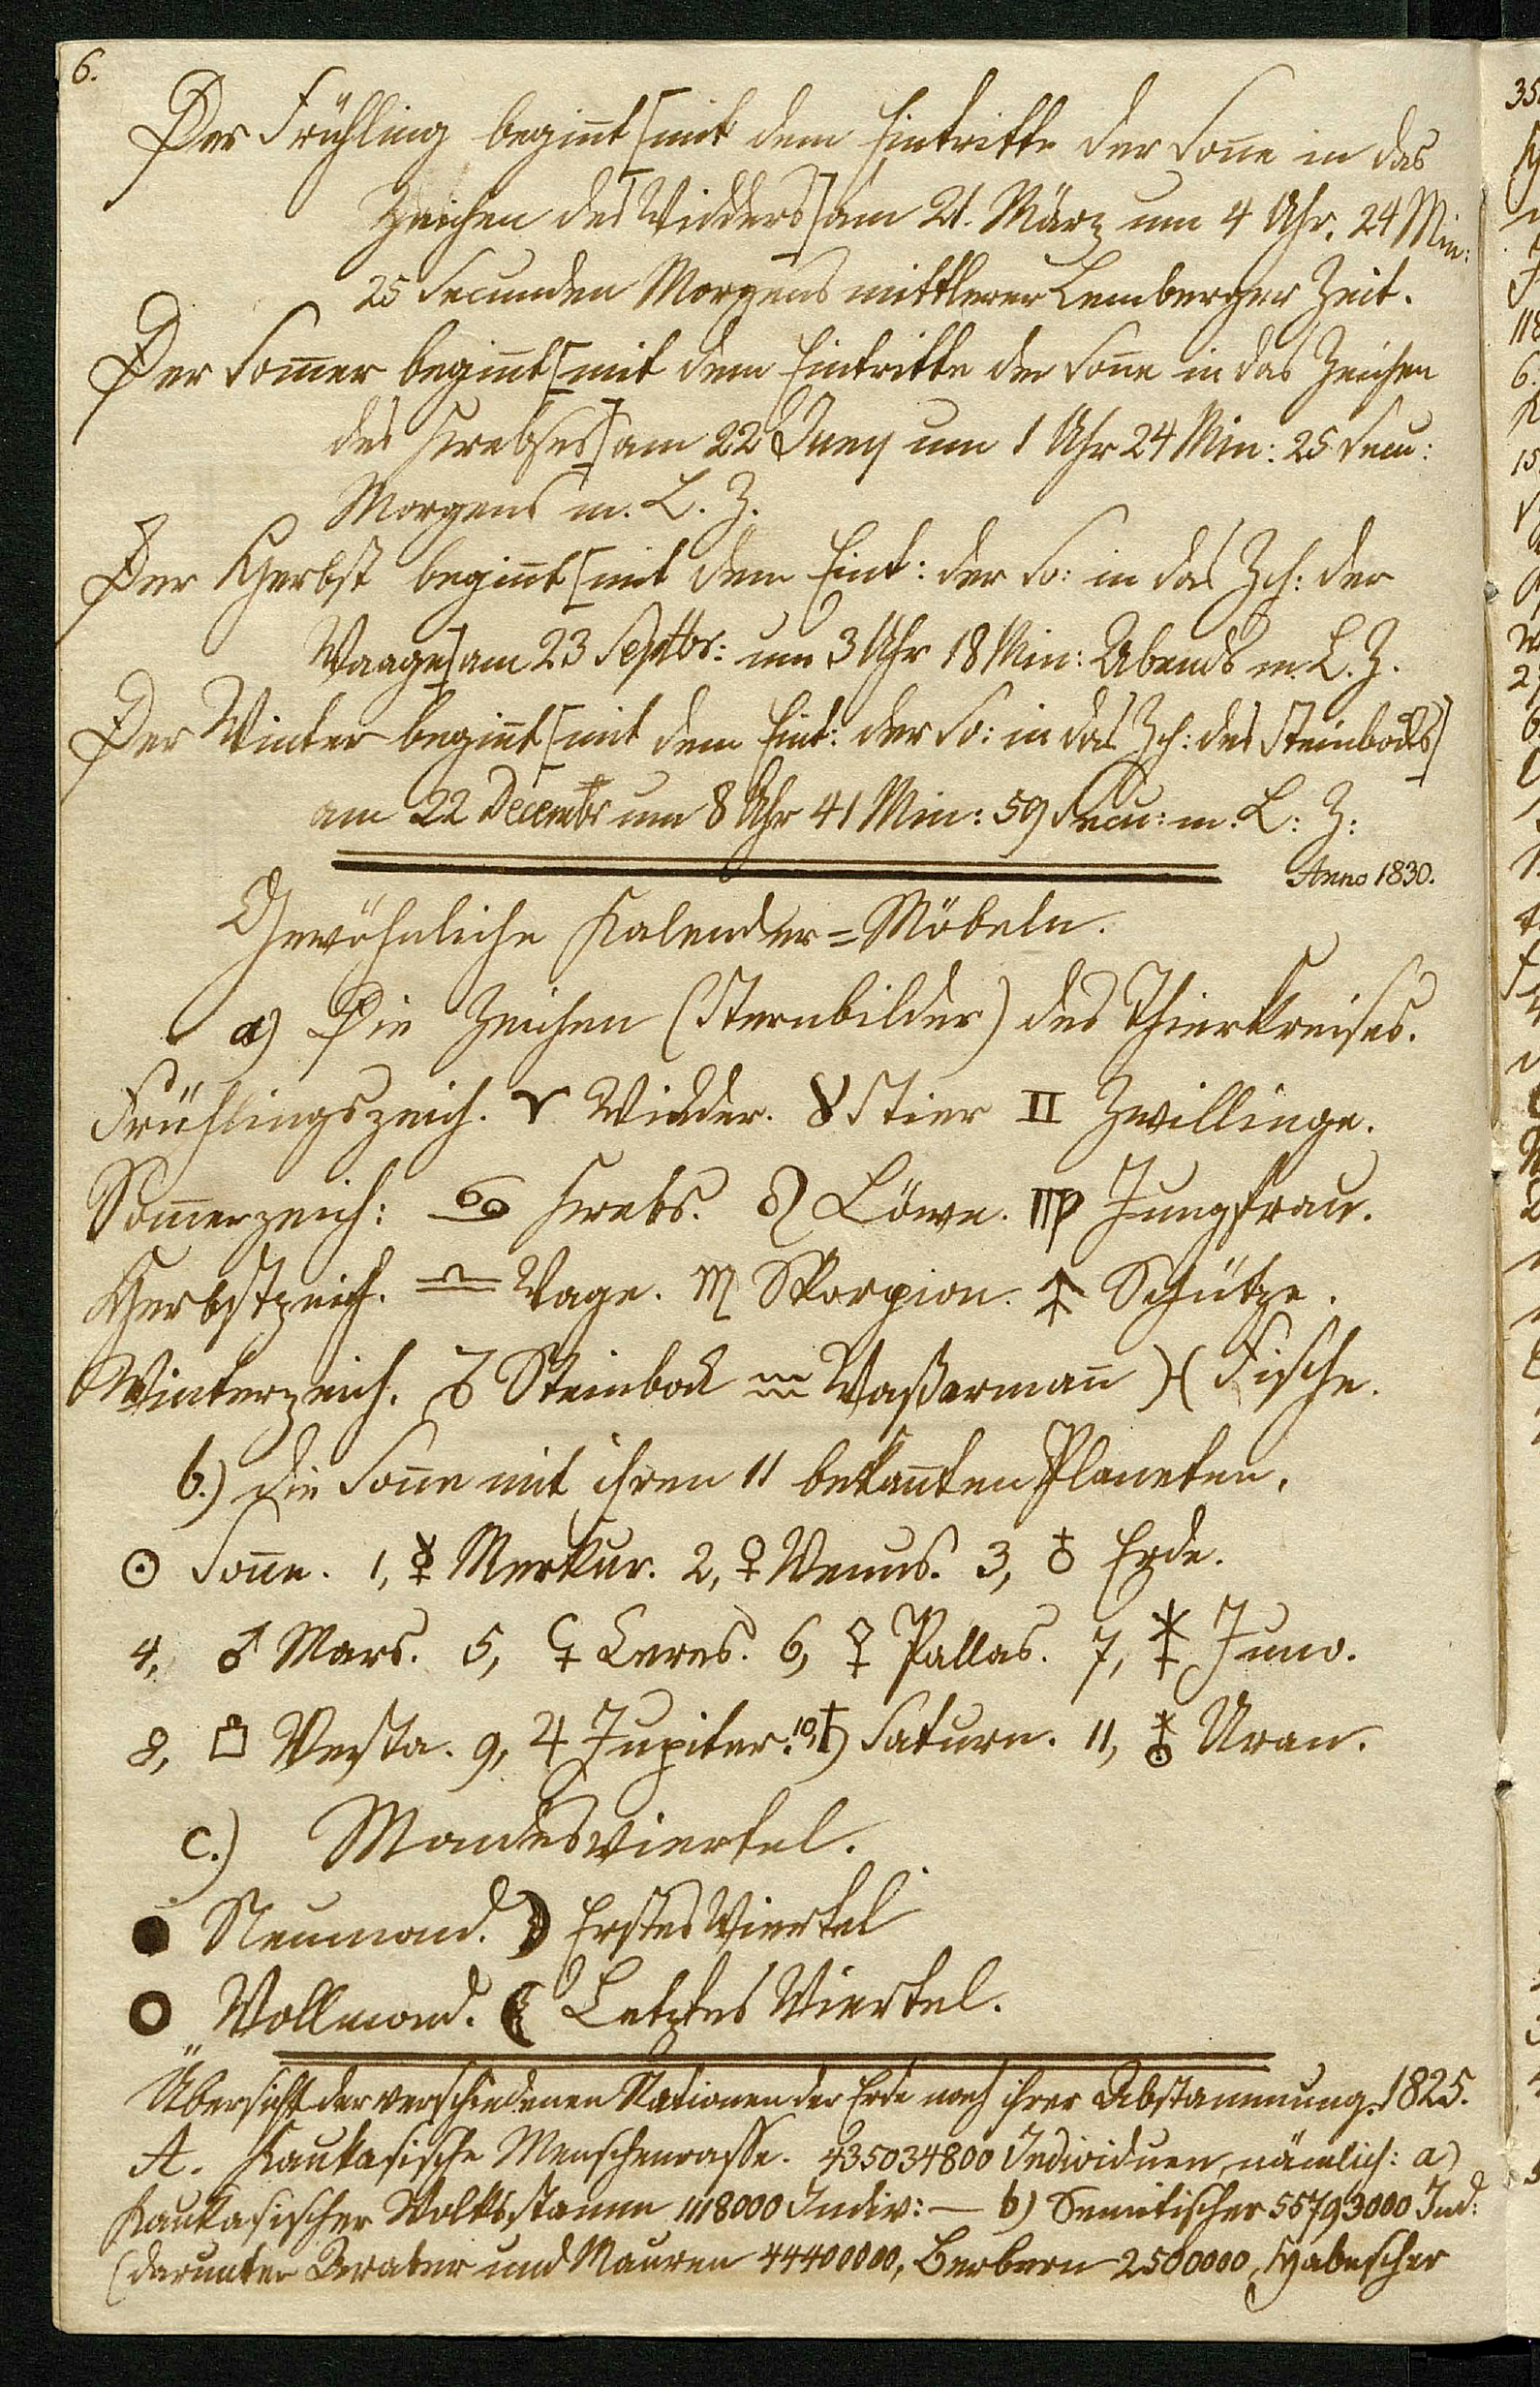 6.
Der Frühling begin̄t [mit dem Eintritte der Son̄e in das
Zeichen des Widders] am 21. März um 4 Uhr. 24 Min:
25 Secunden Morgens mittlerer Lemberger Zeit.
Der Som̄er begin̄t [mit dem Eintritte der Son̄e in das Zeichen
des Krebses] am 22 Juny um 1 Uhr 24 Min: 25 Secu:
Morgens m. L. Z.
Der Herbst begin̄t [mit dem Eint: der So: in das Zch: der
Waage] am 23 Septbr: um 3 Uhr 18 Min: Abends m. L. Z.
Der Winter begin̄t [mit dem Eint: der So: in das Zch: des Steinbocks]
am 22 Decembr um 8 Uhr 41 Min: 59 Secu: m: L: Z:
Anno 1830.
Gewöhnliche Kalender=Möbeln.
a) Die Zeichen (Sternbilder) des Thierkreises.
Frühlingszeich. ♈ Widder. ♉ Stier ♊ Zwillinge.
Som̄erzeich: ♋ Krebs. ♌ Löwe. ♍ Jungfrau.
Herbstzeich. ♎ Wage. ♏ Skorpion. ♐ Schütze.
Winterzeich. ♑ Steinbock ♒ Waßerman̄ ♓ Fische.
b.) die Son̄e mit ihren 11 bekan̄ten Planeten.
☉ Son̄e. 1, ☿ Merkur. 2, ♀ Venus. 3, ♁ Erde.
4, ♂ Mars. 5, ⚳ Ceres. 6, ⚴ Pallas. 7, ⚵ Juno.
8, ⚶ Vesta. 9, ♃ Jupiter. 10, ♄ Saturn. 11, ⛢ Uran.
c.) Mondesviertel.
● Neumond. ☽ Erstes Viertel
○ Vollmond. ☾ Letztes Viertel.
Übersicht der verschiedenen Nationen der Erde nach ihrer Abstammung. 1825.
A. Kaukasische Menschenrasse. 435034800 Individuen, nämlich: a)
Kaukasischer Volksstamm 1118000 Indiv: — b) Semitischer 55793000 Ind:
(darunter Araber und Mauren 44400000, Berbern 2500000, Habescher